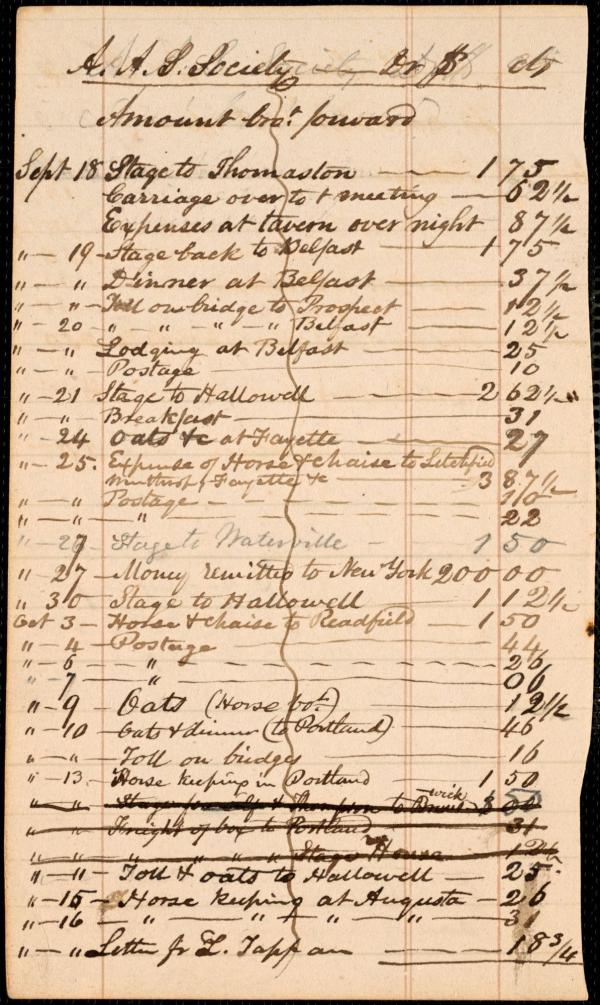 A. A. S. Society Dr $ cts
Amount bro.t forward
Sept 18 Stage to Thomaston — 1 75
Carriage over to t meeting — 62 1/2
Expenses at tavern over night 87 1/2
" — 19 — Stage back to Belfast — 1 75
" — " Dinner at Belfast — 37 1/2
" — " — Toll on bridge to Prospect — 12 1/2
" — 20 " — " " — " Belfast — 12 1/2
" — " Lodging at Belfast — 25
" — " — Postage — 10
" — 21 Stage to Hallowell — 2 62 1/2
" — " Breakfast — 31
" — 24 Oats &c at Fayette — 27
" — 25. Expense of Horse & chaise to Litchfield
Winthrop, Fayette &c — 3 87 1/2
" — " Postage — 10
" — " " — 22
" 27 Stage to Waterville — 1 50
" 27 — Money remitted to New York 200 00
" 30 Stage to Hallowell — 1 12 1/2
Oct 3 — Horse & chaise to Readfield — 1 50
" — 4 — Postage — 44
" — 6 — " — 26
" — 7 — " — 06
" — 9 — Oats (Horse bo.t) — 12 1/2
" — 10 — Oats & dinner (to Portland) — 46
" — " — Toll on bridges — 16
" — 13 — Horse keeping in Portland — 1 50
" " — Stage for self & Thompson to Brunswick $ 00
" " — Freight of box to Portland — 31
" " " " " " Stage House — 12 1/2
" — 11 — Toll & oats to Hallowell — 25
" — 15 — Horse keeping at Augusta — 26
" — 16 — " — " — " " — 31
" — " — Letter fr L. Tappan — 18 3/4